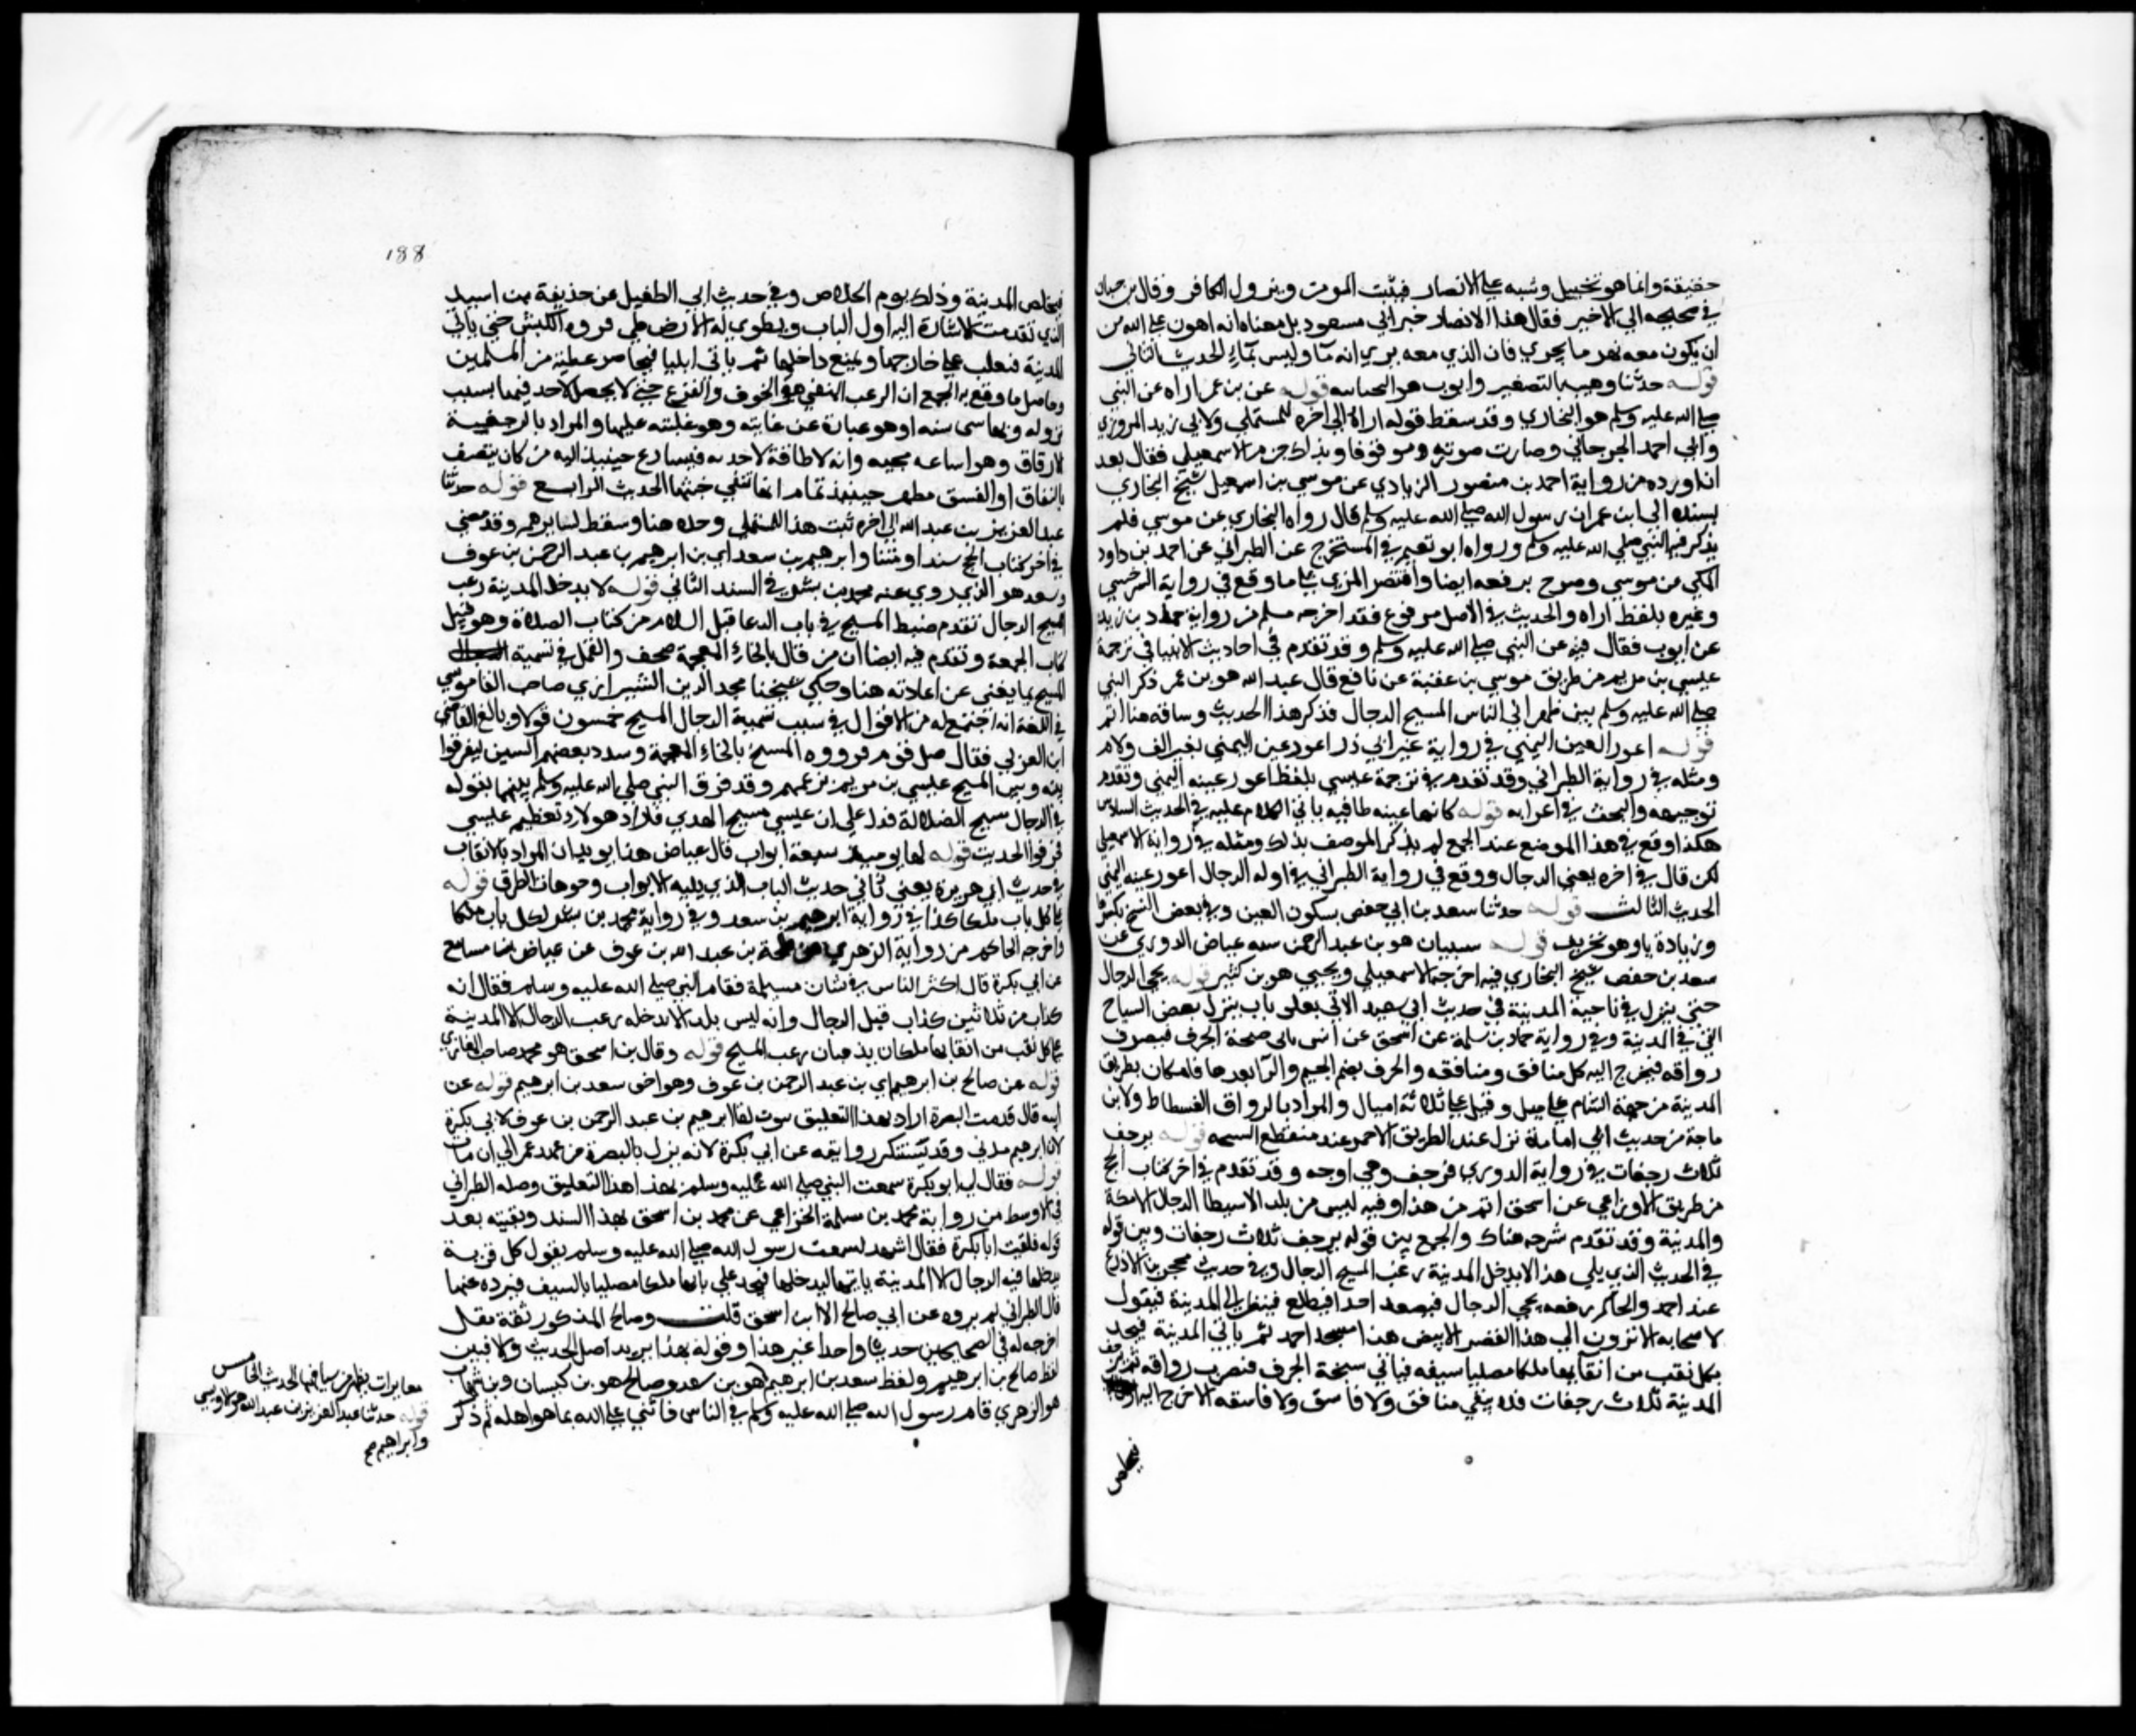 حقيقة وانما هو تخييل وشبه على الابصار فيثبت المومن ويزول الكافر وقال بن حبان
في صحيحه الى الاخير فقال هذا الانصار خبر ابي مسعود بل معناه انه اهون على الله من
ان يكون معه نهر ما يجري فان الذي معه يري انه ما وليس بماء الحديث الثاني
قوله حدثنا وهيب بالتصغير وايوب هو السختياني قوله عن بن عمر اراه عن النبي
صلى الله عليه وسلم هو البخاري وقد سقط قوله اراه الى اخره للمستملي ولابي زيد المروزي
وابي احمد الجرجاني وصارت صورته موقوفا وبذلك جزم الاسمعيلي فقال بعد
ان اورده من رواية احمد بن منصور الرمادي عن موسي بن اسمعيل شيخ البخاري
بسنده الى ابن عمر ان رسول الله صلى الله عليه وسلم قال رواه البخاري عن موسي فلم
يذكر فيه النبي صلى الله عليه وسلم ورواه ابو نعيم في المستخرج عن الطبراني عن احمد بن داود
المكي عن موسي وصرح برفعه ايضا واقتصر المزي على ما وقع في رواية السرخسي
وغيره بلفظ اراه والحديث في الاصل مرفوع فقد اخرجه مسلم من رواية حماد بن زيد
عن ايوب فقال فيه عن النبي صلى الله عليه وسلم وقد تقدم في احاديث الانبيا في ترجمة
عيسي بن مريم من طريق موسي بن عقبة عن نافع قال عبد الله هو بن عمر ذكر النبي
صلى الله عليه وسلم بين ظهراني الناس المسيح الدجال فذكر هذا الحديث وساقه هنا اتم
قوله اعور العين اليمني في رواية غير ابي ذر اعور عين اليمني بغير الف ولام
ومثله في رواية الطبراني وقد تقدم في ترجمة عيسي بلفظ اعور عينه اليمني وتقدم
توجيهه والبحث في اعرابه قوله كانها عينه طافيه ياتي الكلام عليه في الحديث السادس
هكذا وقع في هذا الموضع عند الجمع لم يذكر الموصف بذلك ومثله في رواية الاسمعيلي
لكن قال في اخره يعني الدجال ووقع في رواية الطبراني في اوله الدجال اعور عينه اليمني
الحديث الثالث قوله حدثنا سعد بن ابي حفص بسكون العين وفي بعض النسخ بكسرها
وزيادة يا وهو تحريف قوله شيبان هو بن عبد الرحمن عباض الدوري عن
سعد بن حفص شيخ البخاري فيه اخرجه الاسمعيلي ويحيي هو بن كثير قوله يجي الدجال
حتي ينزل في ناحية المدينة في حديث ابي سعيد الاتي بعد باب ينزل بعض السباخ
التي في المدينة وفي رواية حماد بن سلمة عن اسحق عن انس ياتي سبخة الجرف فيضرب
رواقه فيخرج اليه كل منافق ومنافقه والجرف بضم الجيم والرا بعدها فا مكان بطريق
المدينة من جهة الشام على ميل وقيل على ثلاثة اميال والمراد بالرواق الفسطاط ولابن
ماجة من حديث ابي امامة نزل عند الطريق الاحمر عند منقطع السبخه قوله يرجف
ثلاث رجفات في رواية الدوري فترجف وهي اوجه وقد تقدم في اخر كتاب الحج
من طريق الاوزاعي عن اسحق اتم من هذا وفيه ليس من بلد الا سيطا الدجال الا مكة
والمدينة وقد تقدم شرحه هناك والجمع بين قوله يرجف ثلاث رجفات وبين قوله
في الحديث الذي يلي هذا لا يدخل المدينة رعب المسيح الدجال وفي حديث محجن بن الادرع
عند احمد والحاكم رفعه يجي الدجال فيصعد احدا فيطلع فينظر الى المدينة فيقول
لاصحابه الا ترون الى هذا القصر الابيض هذا مسجد احمد ثم ياتي المدينة فيجد
بكل نقب من انقابها ملكا مصلتا سيفه فياتي سبخة الجرف فيضرب رواقه ثم ترجف
المدينة ثلاث رجفات فلا يبقي منافق ولا فاسق ولا فاسقه الا خرج اليه
فيخلص
188
فيخلص المدينة وذلك يوم الخلاص وفي حديث ابي الطفيل عن حذيفة بن اسيد
الذي تقدمت الاشارة اليه اول الباب وتطوي له الارض طي فروة الكبش حتي ياتي
المدينة فيغلب على خارجها ويمنع داخلها ثم ياتي ايليا فيحاصر عصابة من المسلمين
وحاصل ما وقع به الجمع ان الرعب المنفي هو الخوف والفزع حتي لا يحصل لاحد فيها بسبب
نزوله قربها شي منه او هو عبارة عن غايته وهو غلبته عليها والمراد بالرجفة
الارفاق وهو اشاعة مجيه وانه لا طاقة لاحد به فيسارع حينيذ اليه من كان يتصف
بالنفاق او الفسق فظهر حينيذ تمام انها تنفي خبثها الحديث الرابع قوله حدثنا
عبد العزيز بن عبد الله الى اخره ثبت هذا للمستملي وحده هنا وسقط لسايرهم وقد مضي
في اخر كتاب الحج سندا ومتنا وابرهيم بن سعد اي بن ابرهيم بن عبد الرحمن بن عوف
وسعد هو الذي روي عنه محمد بن بشر في السند الثاني قوله لا يدخل المدينة رعب
المسيح الدجال تقدم ضبط المسيح في باب الدعا قبل السلام من كتاب الصلاة وهو قبيل
كتاب الجمعة وتقدم فيه ايضا ان من قال بالخاء المعجمة صحف والقول في تسمية
المسيح بما يغني عن اعادته هنا وحكي شيخنا مجد الدين الشيرازي صاحب القاموس
في اللغة انه اجتمع له من الاقوال في سبب تسمية الدجال المسيح خمسون قولا وبالغ القاضي
ابن العربي فقال ضل قوم فرووه المسيخ بالخاء المعجمة وشدد بعضهم السين ليفرقوا
بينه وبين المسيح عيسي بن مريم بزعمهم وقد فرق النبي صلى الله عليه وسلم بينهما بقوله
في الدجال مسيح الضلالة فدل على ان عيسي مسيح الهدي فاراد هولا تعظيم عيسي
فحرفوا الحديث قوله لها يوميذ سبعة ابواب قال عياض هذا يويد ان المراد بالانقاب
في حديث ابي هريرة يعني ثاني حديث الباب الذي يليه الابواب وفوهات الطرق قوله
على كل باب ملكان كذا في رواية ابرهيم بن سعد وفي رواية محمد بن بشر لكل باب ملكا
واخرجه الحاكم من رواية الزهري عن طلحة بن عبد الله بن عوف عن عياض بن مسافع
عن ابي بكرة قال اكثر الناس في شان مسيلمة فقام النبي صلى الله عليه وسلم فقال انه
كذاب من ثلاثين كذاب قبل الدجال وانه ليس بلد الا يدخله رعب الدجال الا المدينة
على كل نقب من انقابها ملكان يذبان رعب المسيح قوله وقال بن اسحق هو محمد صاحب المغازي
قوله عن صالح بن ابرهيم اي بن عبد الرحمن بن عوف وهو اخو سعد بن ابرهيم قوله عن
ابيه قال قدمت البصرة اراد بهذا التعليق ثبوت لقا ابرهيم بن عبد الرحمن بن عوف لابي بكرة
لان ابرهيم مدني وقد تستنكر روايته عن ابي بكرة لانه نزل بالبصرة من عهد عمر الى ان مات
قوله فقال لي ابو بكرة سمعت النبي صلى الله عليه وسلم بهذا هذا التعليق وصله الطبراني
في الاوسط من رواية محمد بن سلمة الخزاعي عن محمد بن اسحق بهذا السند وبقيته بعد
قوله فلقيت ابا بكرة فقال اشهد لسمعت رسول الله صلى الله عليه وسلم يقول كل قرية
يدخلها فيه الدجال الا المدينة ياتيها ليدخلها فيجد على بابها ملكا مصلتا بالسيف فيرده عنها
قال الطبراني لم يروه عن ابي صالح الا ابن اسحق قلت وصالح المذكور ثقة مقل
اخرجا له في الصحيحين حديثا واحدا غير هذا وقوله بهذا يريد اصل الحديث والا فبين
لفظ صالح بن ابرهيم ولفظ سعد بن ابرهيم هو بن سعد وصالح هو بن كيسان وبن شهاب
هو الزهري قام رسول الله صلى الله عليه وسلم في الناس فاثني على الله بما هو اهله ثم ذكر
مغايرات تظهر من سياقهما الحديث الخامس
قوله حدثنا عبد العزيز بن عبد الله هو الاويسي
وابراهيم صح